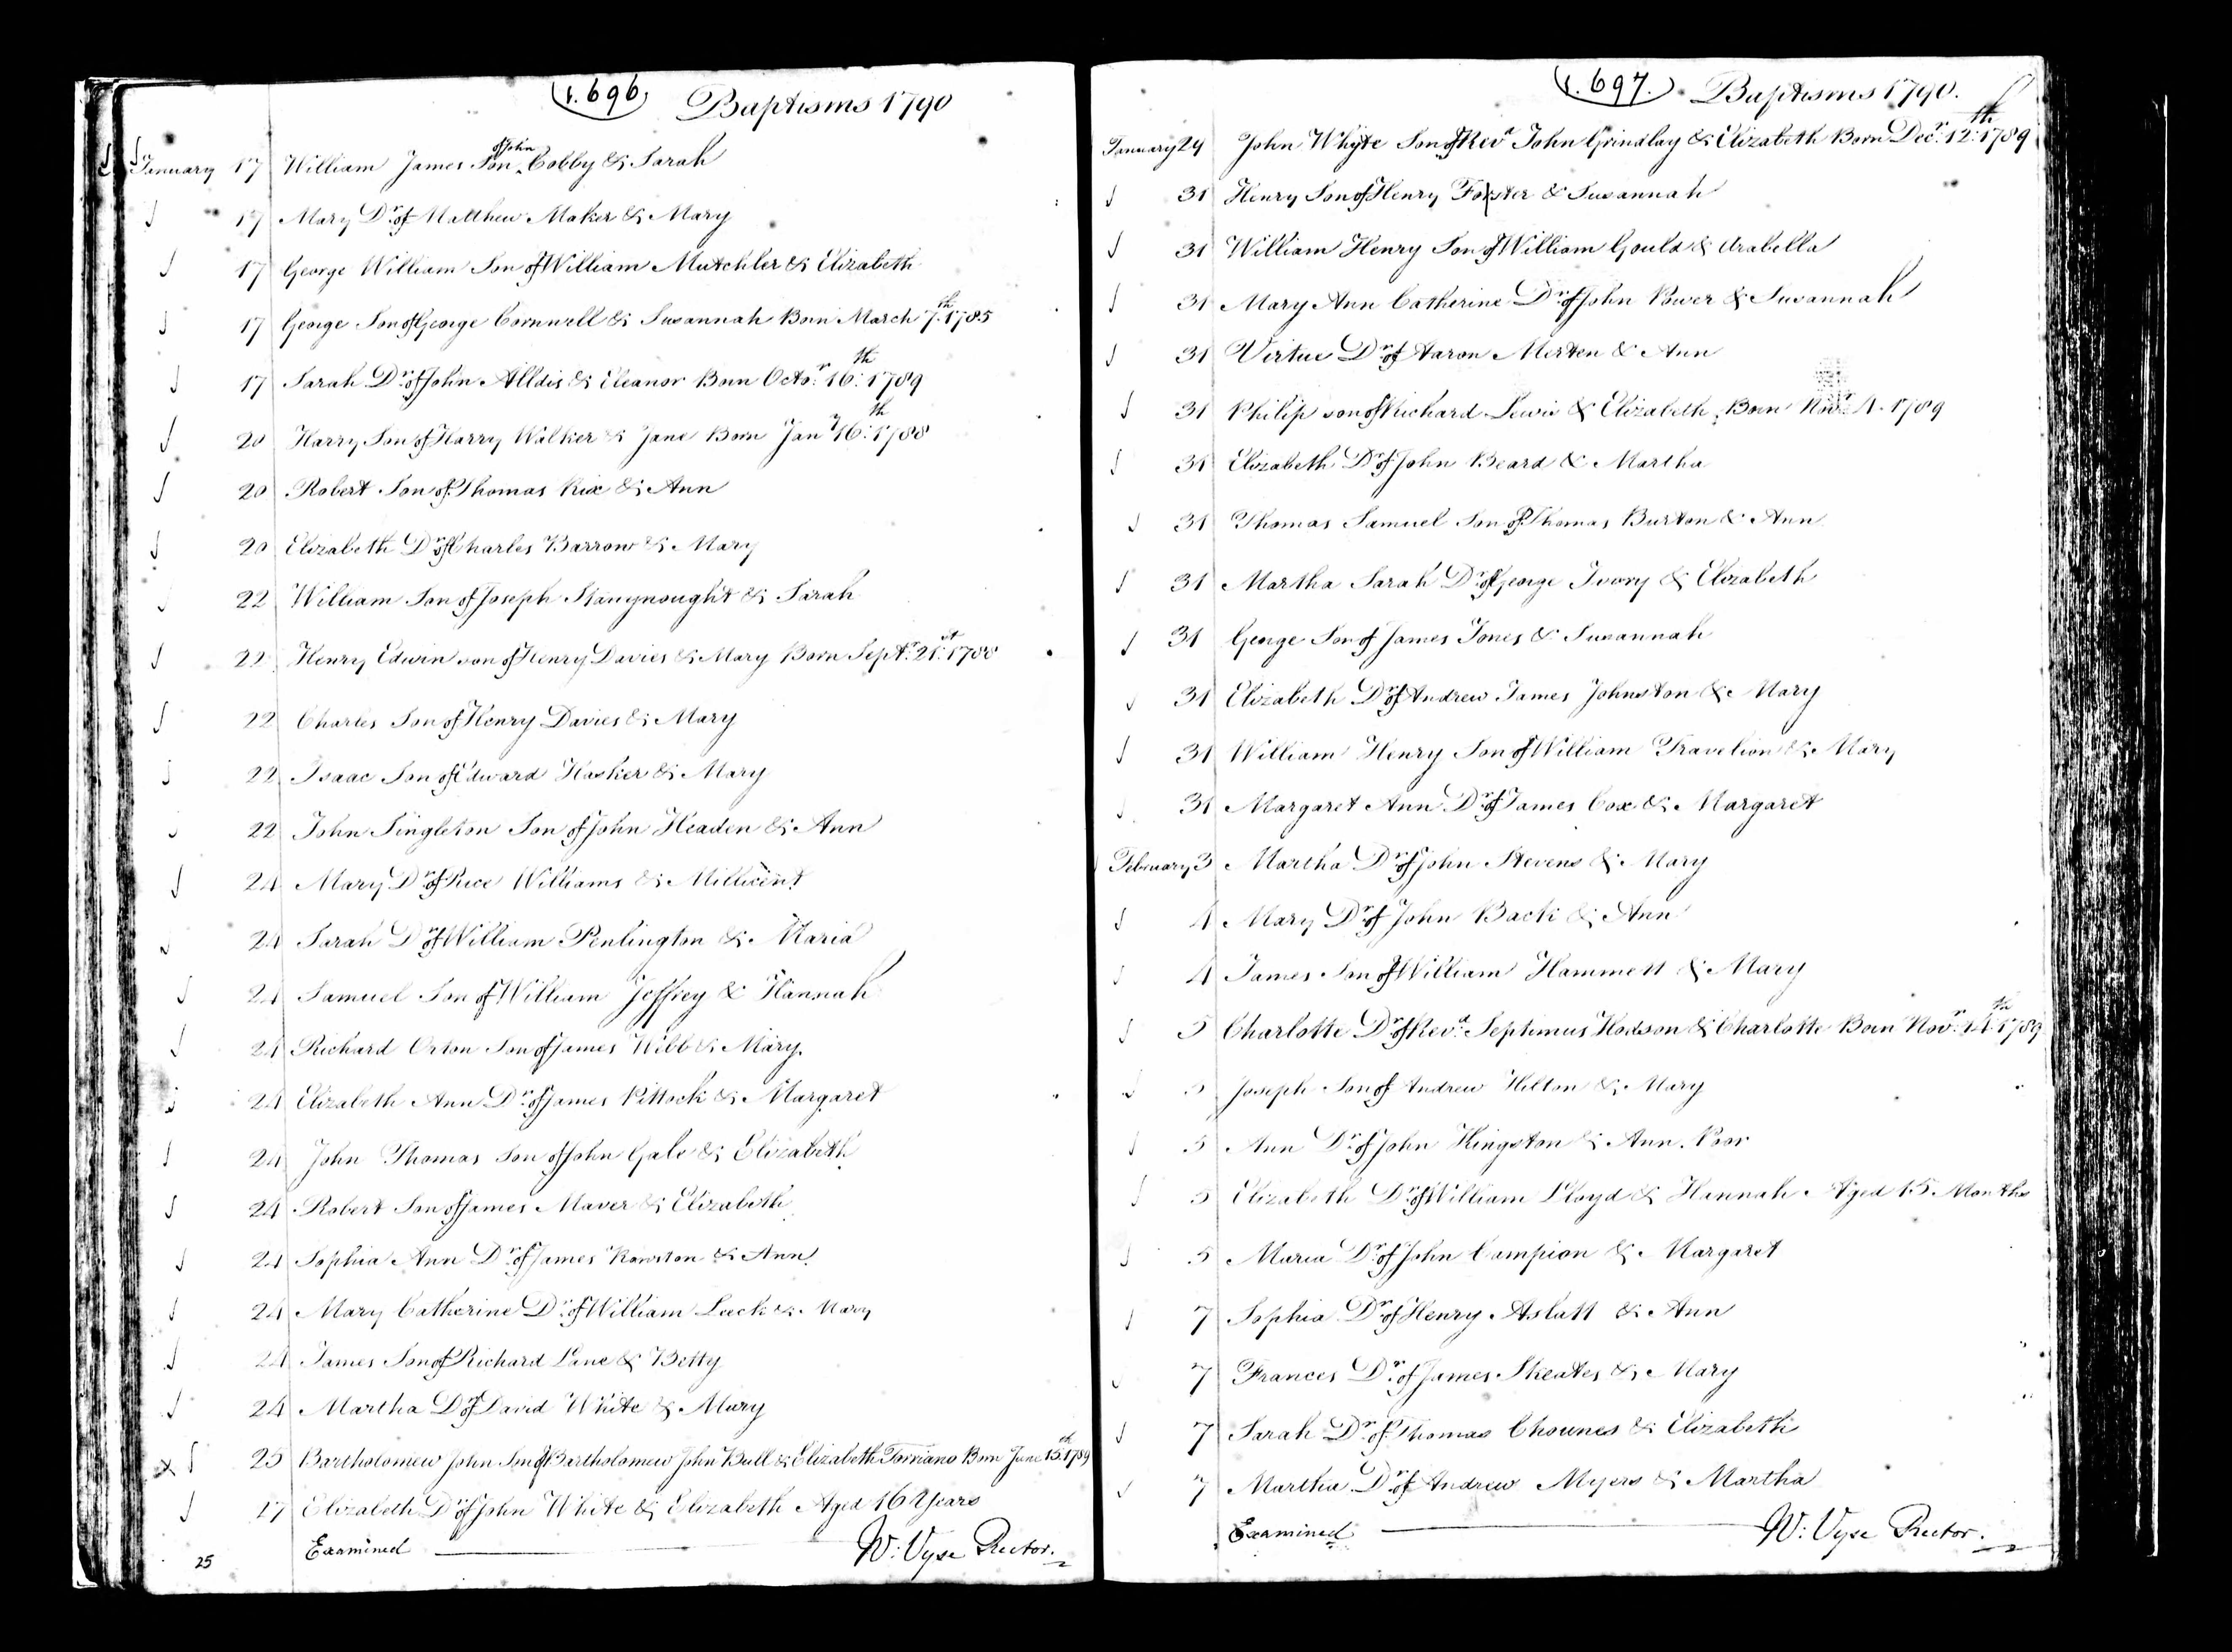 1.696 Baptisms 1790
January 17 William James Son of John Cobby & Sarah
17 Mary Dr. of Matthew Maker & Mary
17 George William Son of William Mutchler & Elizabeth
17 George Son of George Cornwell & Susannah Born March 7th. 1785
17 Sarah Dr. of John Alldis & Eleanor Born Octo.r 16th: 1789
20 Harry Son of Harry Walker & Jane Born Jany. 16th: 1788
20 Robert Son of Thomas Rix & Ann
20 Elizabeth Dr. of Charles Barrow & Mary
22 William Son of Joseph & Sarah
22 Henry Edwin son of Henry Davies & Mary Born Sept.r 21st: 1788
22 Charles Son of Henry Davies & Mary
22 Isaac Son of Edward Hasker & Mary
22 John Singleton Son of John Headen & Ann
24 Mary Dr. of Rice Williams & Millicent
24 Sarah Dr. of William Penlington & Maria
24 Samuel Son of William Jeffrey & Hannah
24 Richard Orton Son of James Webb & Mary
24 Elizabeth Ann Dr. of James Pittock & Margaret
24 John Thomas Son of John Gale & Elizabeth
24 Robert Son of James Maver & Elizabeth
24 Sophia Ann Dr. of James Rowston & Ann
24 Mary Catherine Dr. of William Leeck & Mary
24 James Son of Richard Lane & Betty
24 Martha Dr. of David White & Mary
25 Bartholomew John Son of Bartholomew John Bull & Elizabeth Torriano Born June 15th. 1789
17 Elizabeth Dr. of John White & Elizabeth Aged 16 Years
Examined W: Vyse Rector.
25
1.697. Baptisms 1790.
January 24 John Whyte Son of Revd John Grindlay & Elizabeth Born Decr. 12th: 1789
31 Henry Son of Henry Forster & Susannah
31 William Henry Son of William Gould & Arabella
31 Mary Ann Catherine Dr. of John Power & Susannah
31 Virtue Dr. of Aaron Merten & Ann
31 Philip son of Richard Lewis & Elizabeth. Born Novr. 4. 1789
31 Elizabeth Dr. of John Beard & Martha
31 Thomas Samuel Son of Thomas Burton & Ann
31 Martha Sarah Dr. of George Ivory & Elizabeth
31 George Son of James Jones & Susannah
31 Elizabeth Dr. of Andrew James Johnston & Mary
31 William Henry Son of William Travelion & Mary
31 Margaret Ann Dr. of James Cox & Margaret
February 3 Martha Dr. of John Stevens & Mary
4 Mary Dr. of John Back & Ann
4 James Son of William Hammett & Mary
5 Charlotte Dr. of Revd. Septimus Hodson & Charlotte Born Novr. 14th. 1789
5 Joseph Son of Andrew Hilton & Mary
5 Ann Dr. of John Kingston & Ann. Poor
5 Elizabeth Dr. of William Lloyd & Hannah. Aged 15 Months
5 Maria Dr. of John Campion & Margaret
7 Sophia Dr. of Henry Aslatt & Ann
7 Frances Dr. of James Skeates & Mary
7 Sarah Dr. of Thomas Chownes & Elizabeth
7 Martha Dr. of Andrew Myers & Martha
Examined W: Vyse Rector.